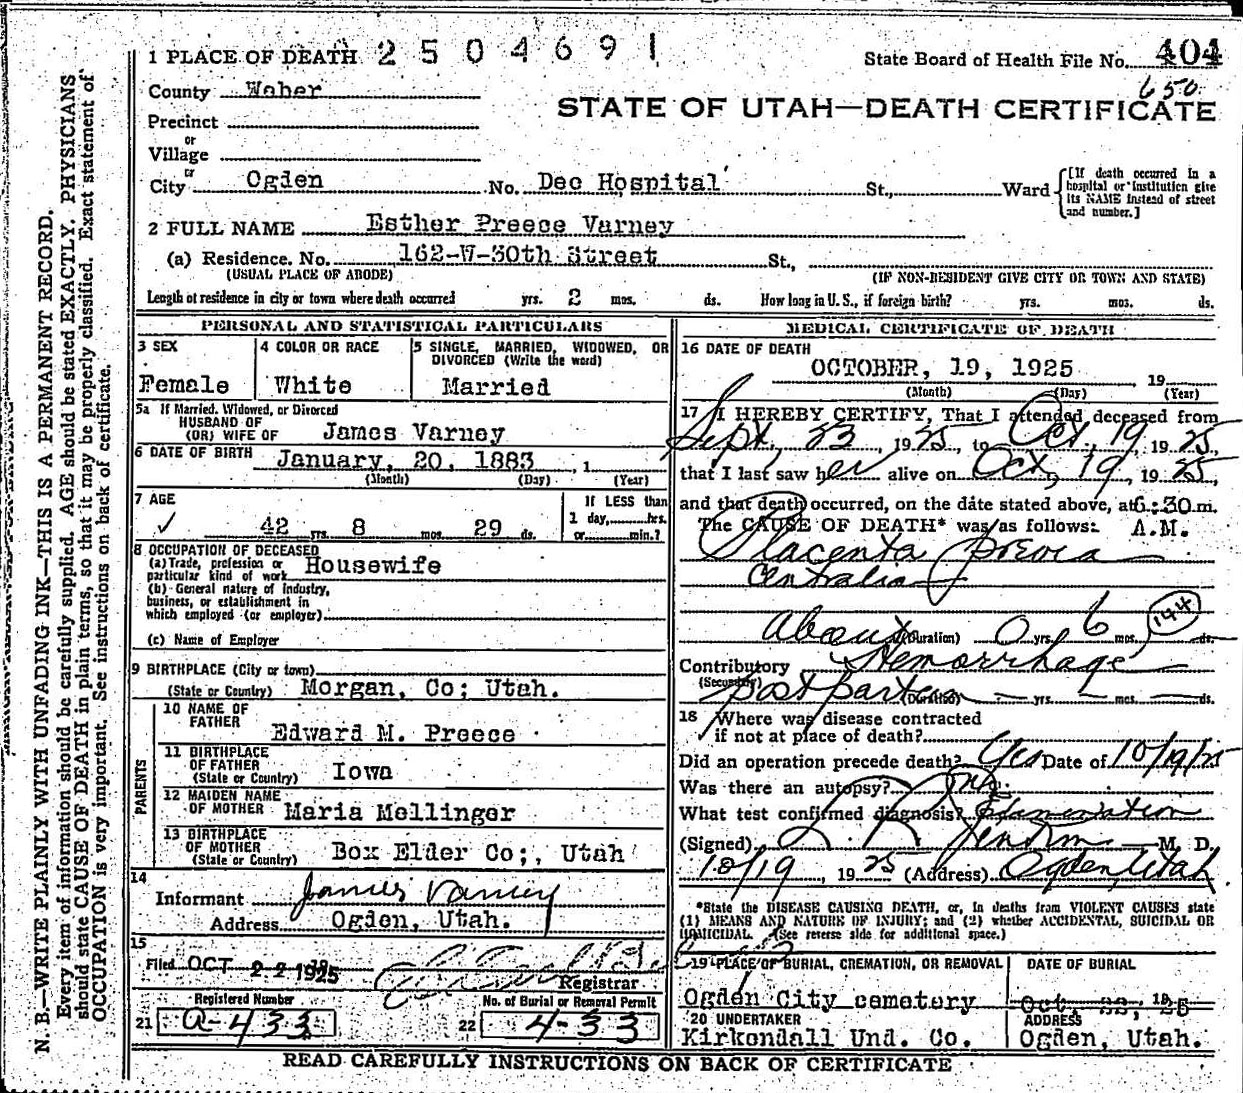 1 PLACE OF DEATH 2 5 0 4 6 9 1
State Board of Health File No. 404
650
County Weber
STATE OF UTAH—DEATH CERTIFICATE
Precinct
or
Village
or
City Ogden No. Dee Hospital St., Ward
[If death occurred in a
hospital or institution give
its NAME instead of street
and number.]
2 FULL NAME Esther Preece Varney
(a) Residence. No. 162-W-30th Street St.,
(USUAL PLACE OF ABODE) (IF NON-RESIDENT GIVE CITY OR TOWN AND STATE)
Length of residence in city or town where death occurred yrs. 2 mos. ds. How long in U. S., if foreign birth? yrs. mos. ds.
PERSONAL AND STATISTICAL PARTICULARS
3 SEX
Female
4 COLOR OR RACE
White
5 SINGLE, MARRIED, WIDOWED, OR
DIVORCED (Write the word)
Married
5a If Married, Widowed, or Divorced
HUSBAND OF
(OR) WIFE OF James Varney
6 DATE OF BIRTH January, 20, 1883, 1
(Month) (Day) (Year)
7 AGE
✓ 42 yrs. 8 mos. 29 ds.
If LESS than
1 day, hrs.
or min.?
8 OCCUPATION OF DECEASED
(a) Trade, profession or
particular kind of work Housewife
(b) General nature of industry,
business, or establishment in
which employed (or employer)
(c) Name of Employer
9 BIRTHPLACE (City or town)
(State or Country) Morgan, Co; Utah.
PARENTS
10 NAME OF
FATHER
Edward M. Preece
11 BIRTHPLACE
OF FATHER
(State or Country) Iowa
12 MAIDEN NAME
OF MOTHER Maria Mellinger
13 BIRTHPLACE
OF MOTHER
(State or Country) Box Elder Co;, Utah
14
Informant James Varney
Address Ogden, Utah.
15
Filed OCT 22 1925
Registrar
Registered Number
21 a-433
No. of Burial or Removal Permit
22 4-33
MEDICAL CERTIFICATE OF DEATH
16 DATE OF DEATH
OCTOBER, 19, 1925, 19
(Month) (Day) (Year)
17 I HEREBY CERTIFY, That I attended deceased from
Sept, 23, 1925, to Oct, 19, 1925,
that I last saw her alive on Oct, 19, 1925,
and that death occurred, on the date stated above, at 6:30 m.
The CAUSE OF DEATH* was as follows: A.M.
Placenta previa
Centralia
144
About (Duration) 0 yrs. 6 mos. ds.
Contributory Hemorrhage
(Secondary) post partum (Duration) — yrs. — mos. — ds.
18 Where was disease contracted
if not at place of death?
Did an operation precede death? Yes Date of 10/19/25
Was there an autopsy? No
What test confirmed diagnosis? Examination
(Signed) M. D.
10/19, 1925 (Address) Ogden, Utah
*State the DISEASE CAUSING DEATH, or, in deaths from VIOLENT CAUSES state
(1) MEANS AND NATURE OF INJURY; and (2) whether ACCIDENTAL, SUICIDAL OR
HOMICIDAL. (See reverse side for additional space.)
19 PLACE OF BURIAL, CREMATION, OR REMOVAL
Ogden City cemetery
DATE OF BURIAL
Oct. 22, 1925
20 UNDERTAKER
Kirkendall Und. Co.
ADDRESS
Ogden, Utah.
READ CAREFULLY INSTRUCTIONS ON BACK OF CERTIFICATE
N. B.—WRITE PLAINLY WITH UNFADING INK—THIS IS A PERMANENT RECORD.
Every item of information should be carefully supplied. AGE should be stated EXACTLY. PHYSICIANS
should state CAUSE OF DEATH in plain terms, so that it may be properly classified. Exact statement of
OCCUPATION is very important. See instructions on back of certificate.